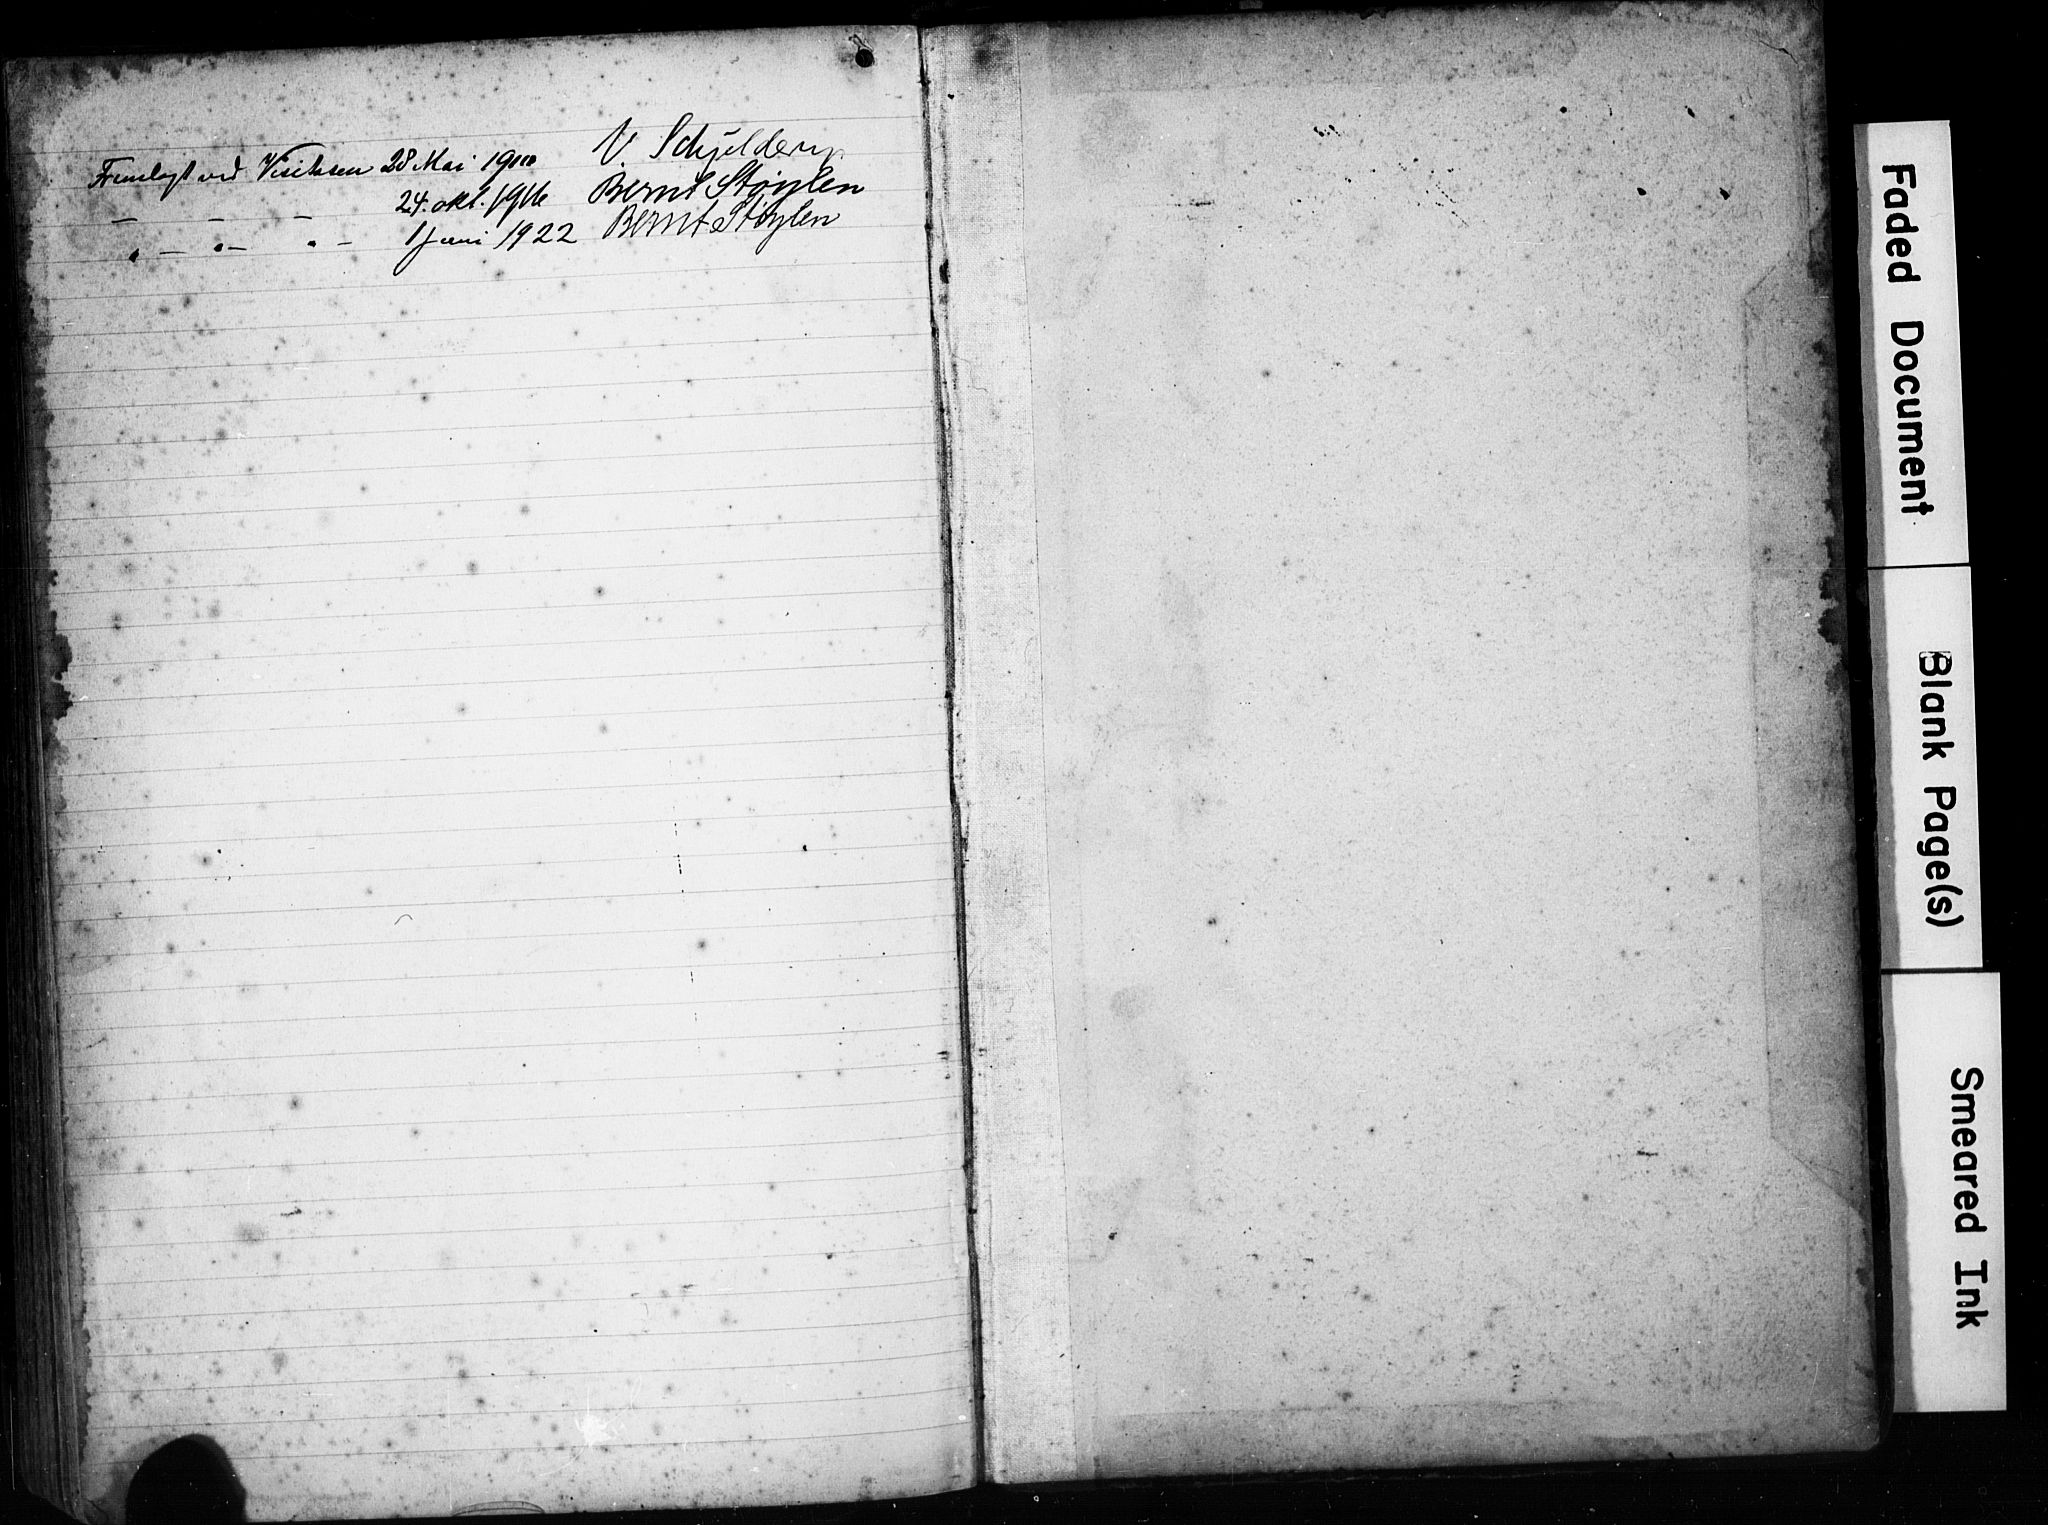 Fremlagt ved Visitasen 28 Mai 1910 V. Schjelderup
— — — 24. okt. 1916 Bernt Støylen
„ — „ — „ — 1 juni 1922 Bernt Støylen
Faded Document
Blank Page(s)
Smeared Ink